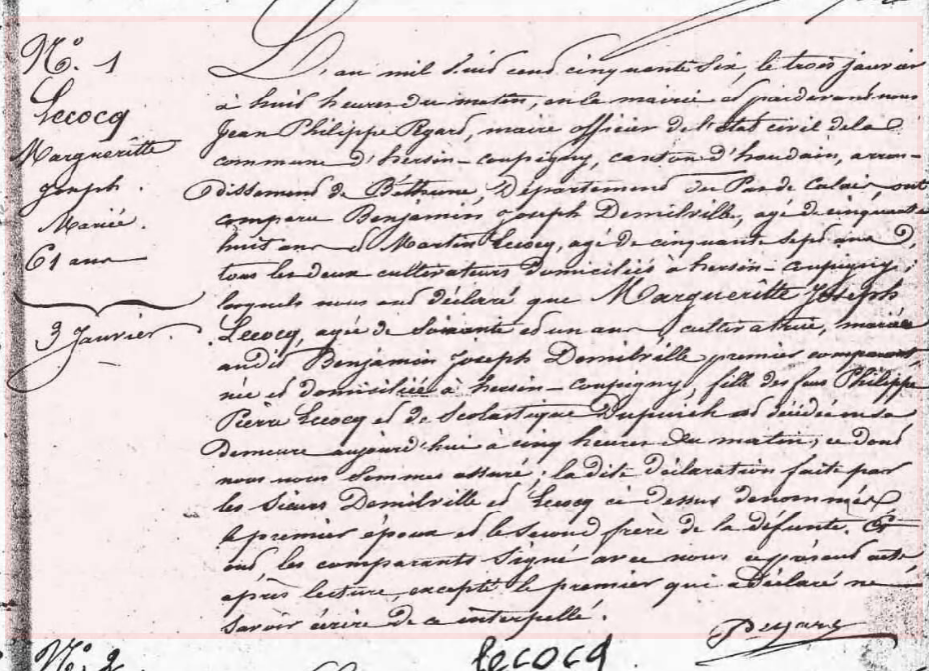 N.° 1
Lecocq
Margueritte
Joseph.
Mariée.
61 ans
3 Janvier.
L'an mil huit cent cinquante six, le trois janvier
à huit heures du matin, en la mairie et pardevant nous
Jean Philippe Pegard, maire officier de l'état civil de la
commune d'hersin-coupigny, canton d'houdain, arron-
dissement de Béthune, Département du Pas de Calais ont
comparu Benjamin Joseph Demilville, agé de cinquante
huit ans et Martin Lecocq, agé de cinquante sept ans,
tous les deux cultivateurs domiciliés à hersin-coupigny;
lesquels nous ont déclaré que Margueritte Joseph
Lecocq, agée de soixante et un ans, cultivatrice, mariée
audit Benjamin Joseph Demilville premier comparant
née et domiciliée à hersin-coupigny, fille des feus Philippe
Pierre Lecocq et de Scolastique Dupuich est décédée en sa
demeure aujourd'hui à cinq heures du matin, ce dont
nous nous sommes assuré; la dite déclaration faite par
les sieurs Demilville et Lecocq ci-dessus dénommés
le premier époux et le second frère de la défunte. Et
ont, les comparants signé avec nous le présent acte
après lecture, excepté le premier qui a déclaré ne
savoir écrire de ce interpellé.
Pegard
N.° 2
lecocq